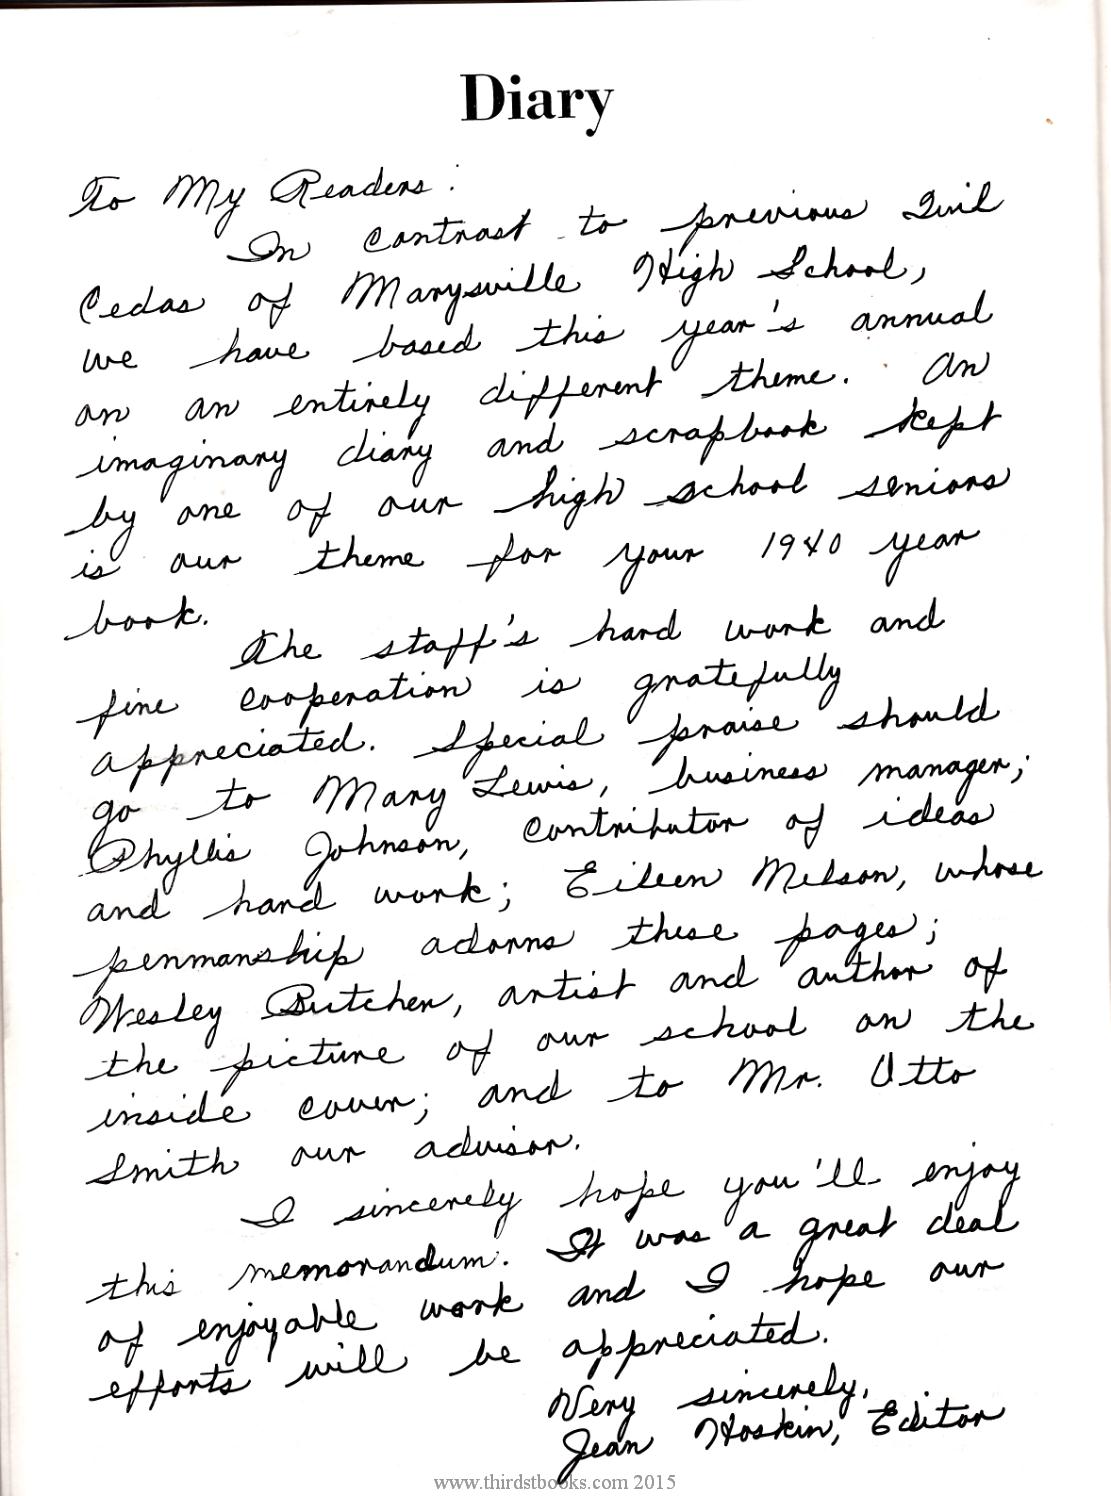 Diary
To My Readers:
In contrast to previous Quil
Cedas of Marysville High School,
we have based this year's annual
on an entirely different theme. An
imaginary diary and scrapbook kept
by one of our high school seniors
is our theme for your 1940 year
book.
The staff's hard work and
fine cooperation is gratefully
appreciated. Special praise should
go to Mary Lewis, business manager;
Phyllis Johnson, contributor of ideas
and hard work; Eileen Nelson, whose
penmanship adorns these pages;
Wesley Butcher, artist and author of
the picture of our school on the
inside cover; and to Mr. Otto
Smith our advisor.
I sincerely hope you'll enjoy
this memorandum. It was a great deal
of enjoyable work and I hope our
efforts will be appreciated.
Very sincerely,
Jean Hoskin, Editor
www.thirdstbooks.com 2015